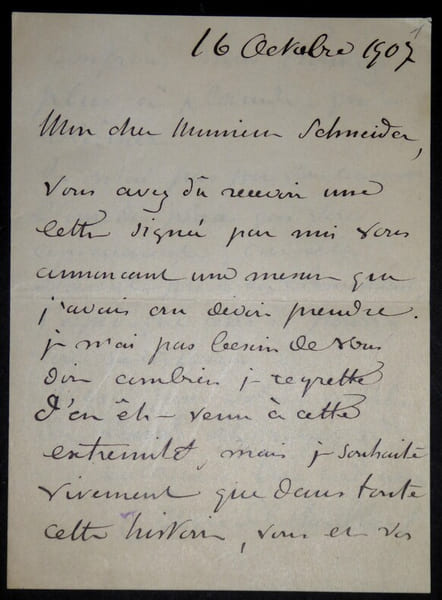 16 Octobre 1907
Mon cher Monsieur Schneider,
Vous avez dû recevoir une
lettre signée par moi vous
annonçant une mesure que
j'avais cru devoir prendre.
je n'ai pas besoin de vous
dire combien je regrette
d'en être venu à cette
extrémité, mais je souhaite
vivement que dans toute
cette histoire, vous et vos